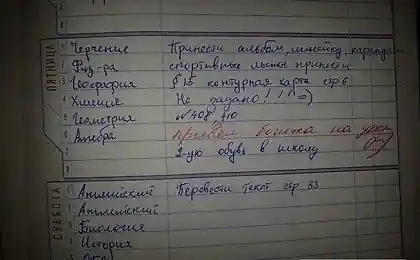 ПЯТНИЦА
1 Черчение Принести альбом, линейку, карандаш
2 Физ-ра спортивные лыжи принести
3 География § 15 контурная карта стр 6
4 Химия Не задано!!! =)
5 Геометрия №408, 410
6 Алгебра на
7 2-ую обувь в школу
8
СУББОТА
Английский Перевести текст стр 33
Английский
Биология
История